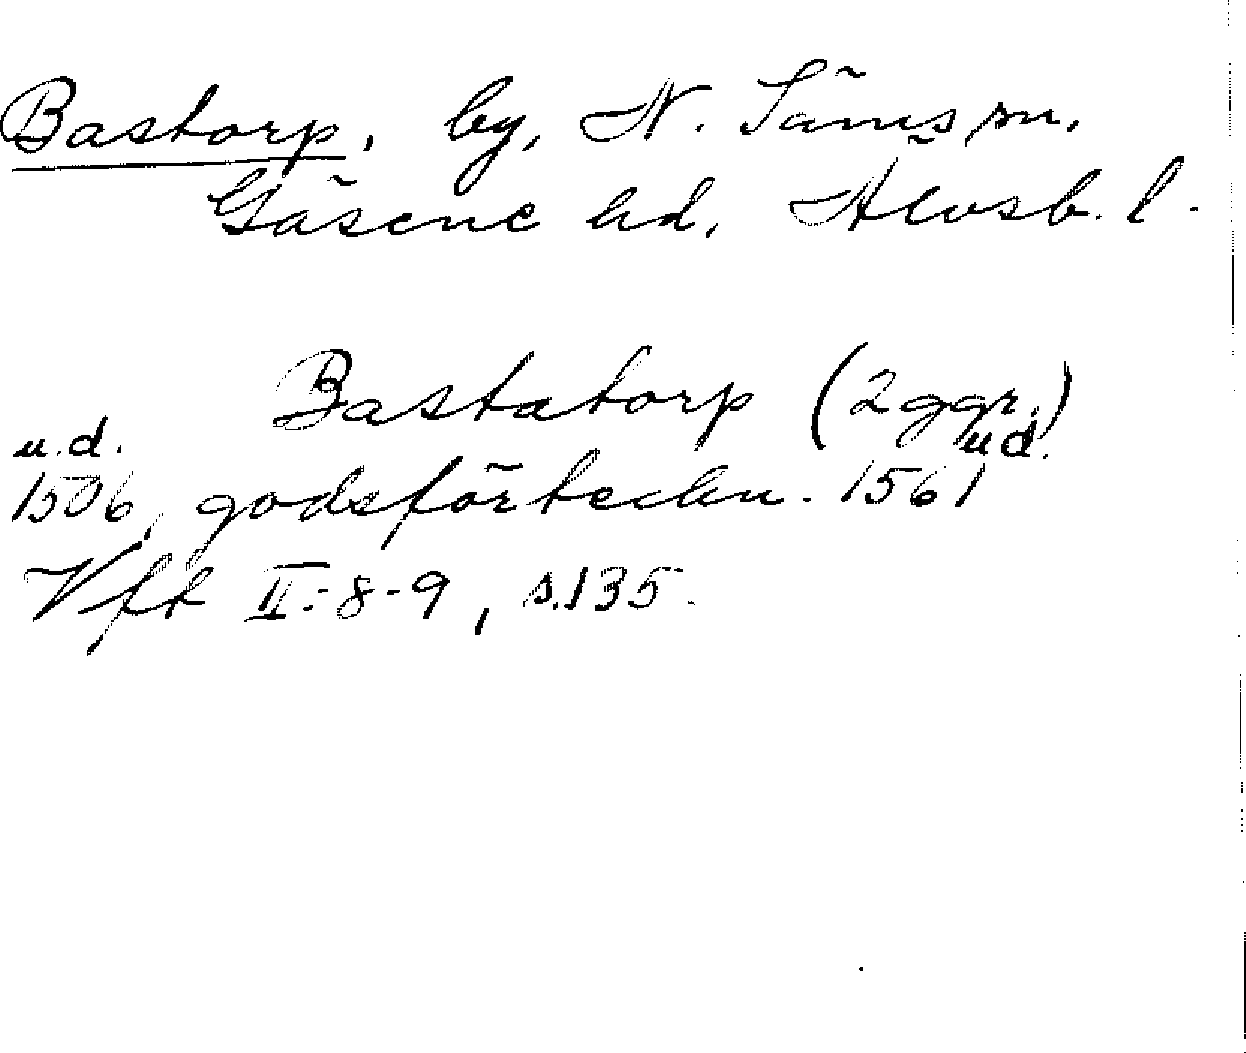 Bastorp, by, N. Säms sn,
Gäsene hd, Älvsb. l.
Bastatorp (2 ggr.)
u.d. u.d.
1506, godsförteckn. 1561
Vft II:8-9, s.135.